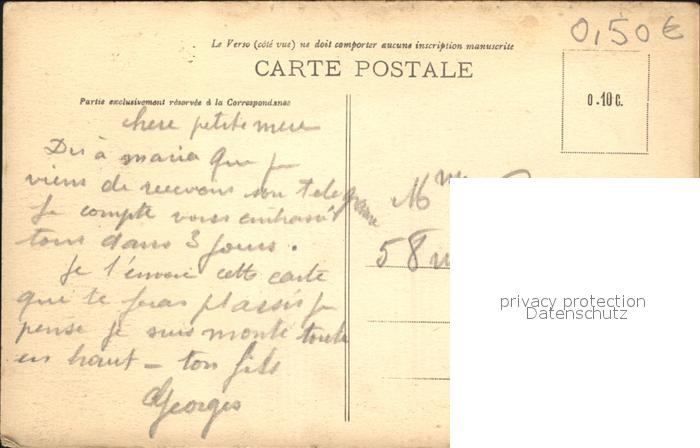 0,50€
Le Verso (côté vue) ne doit comporter aucune inscription manuscrite
CARTE POSTALE
0.10 c.
Partie exclusivement réservée à la Correspondance
chere petite mere
Dis à maria que je
viens de recevoir son telegramme
Je compte vous embrassé
tous dans 3 jours.
Je t'envoie cette carte
que te feras plaisir je
pense je suis monté toute
en haut — ton fils
Georges
Mme
58
privacy protection
Datenschutz